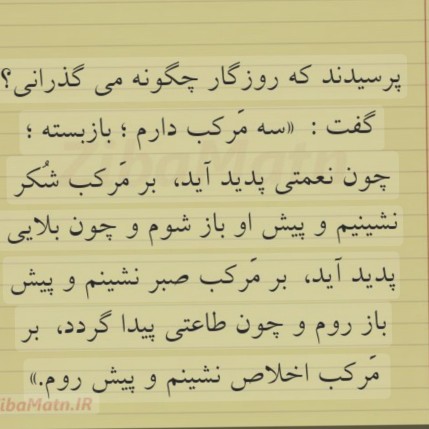 پرسیدند که روزگار چگونه می گذرانی؟
گفت : «سه مَرکب دارم ؛ بازبسته ؛
چون نعمتی پدید آید، بر مَرکب شُکر
نشینیم و پیش او باز شوم و چون بلایی
پدید آید، بر مَرکب صبر نشینم و پیش
باز روم و چون طاعتی پیدا گردد، بر
مَرکب اخلاص نشینم و پیش روم.»
ZibaMatn
ibaMatn.IR